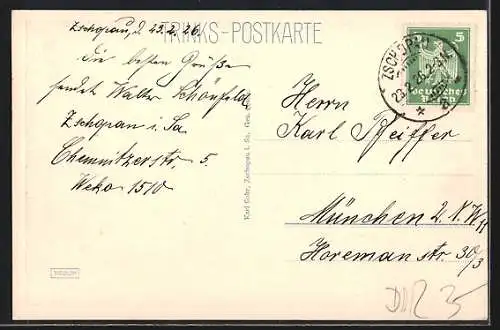 TRINKS-POSTKARTE
Zschopau, d 23.2.26.
die besten Grüße
sendet Walter Schönfeld
Zschopau i. Sa
Chemnitzerstr. 5.
Weko 1510
Karl Gohr, Zschopau i. Sa., Ges.
5
ZSCHOPAU
23.2.26.2-3N
Deutsches
Reich
Herrn
Karl Pfeiffer
München 2. N.W. 11
Horemanstr. 30/3